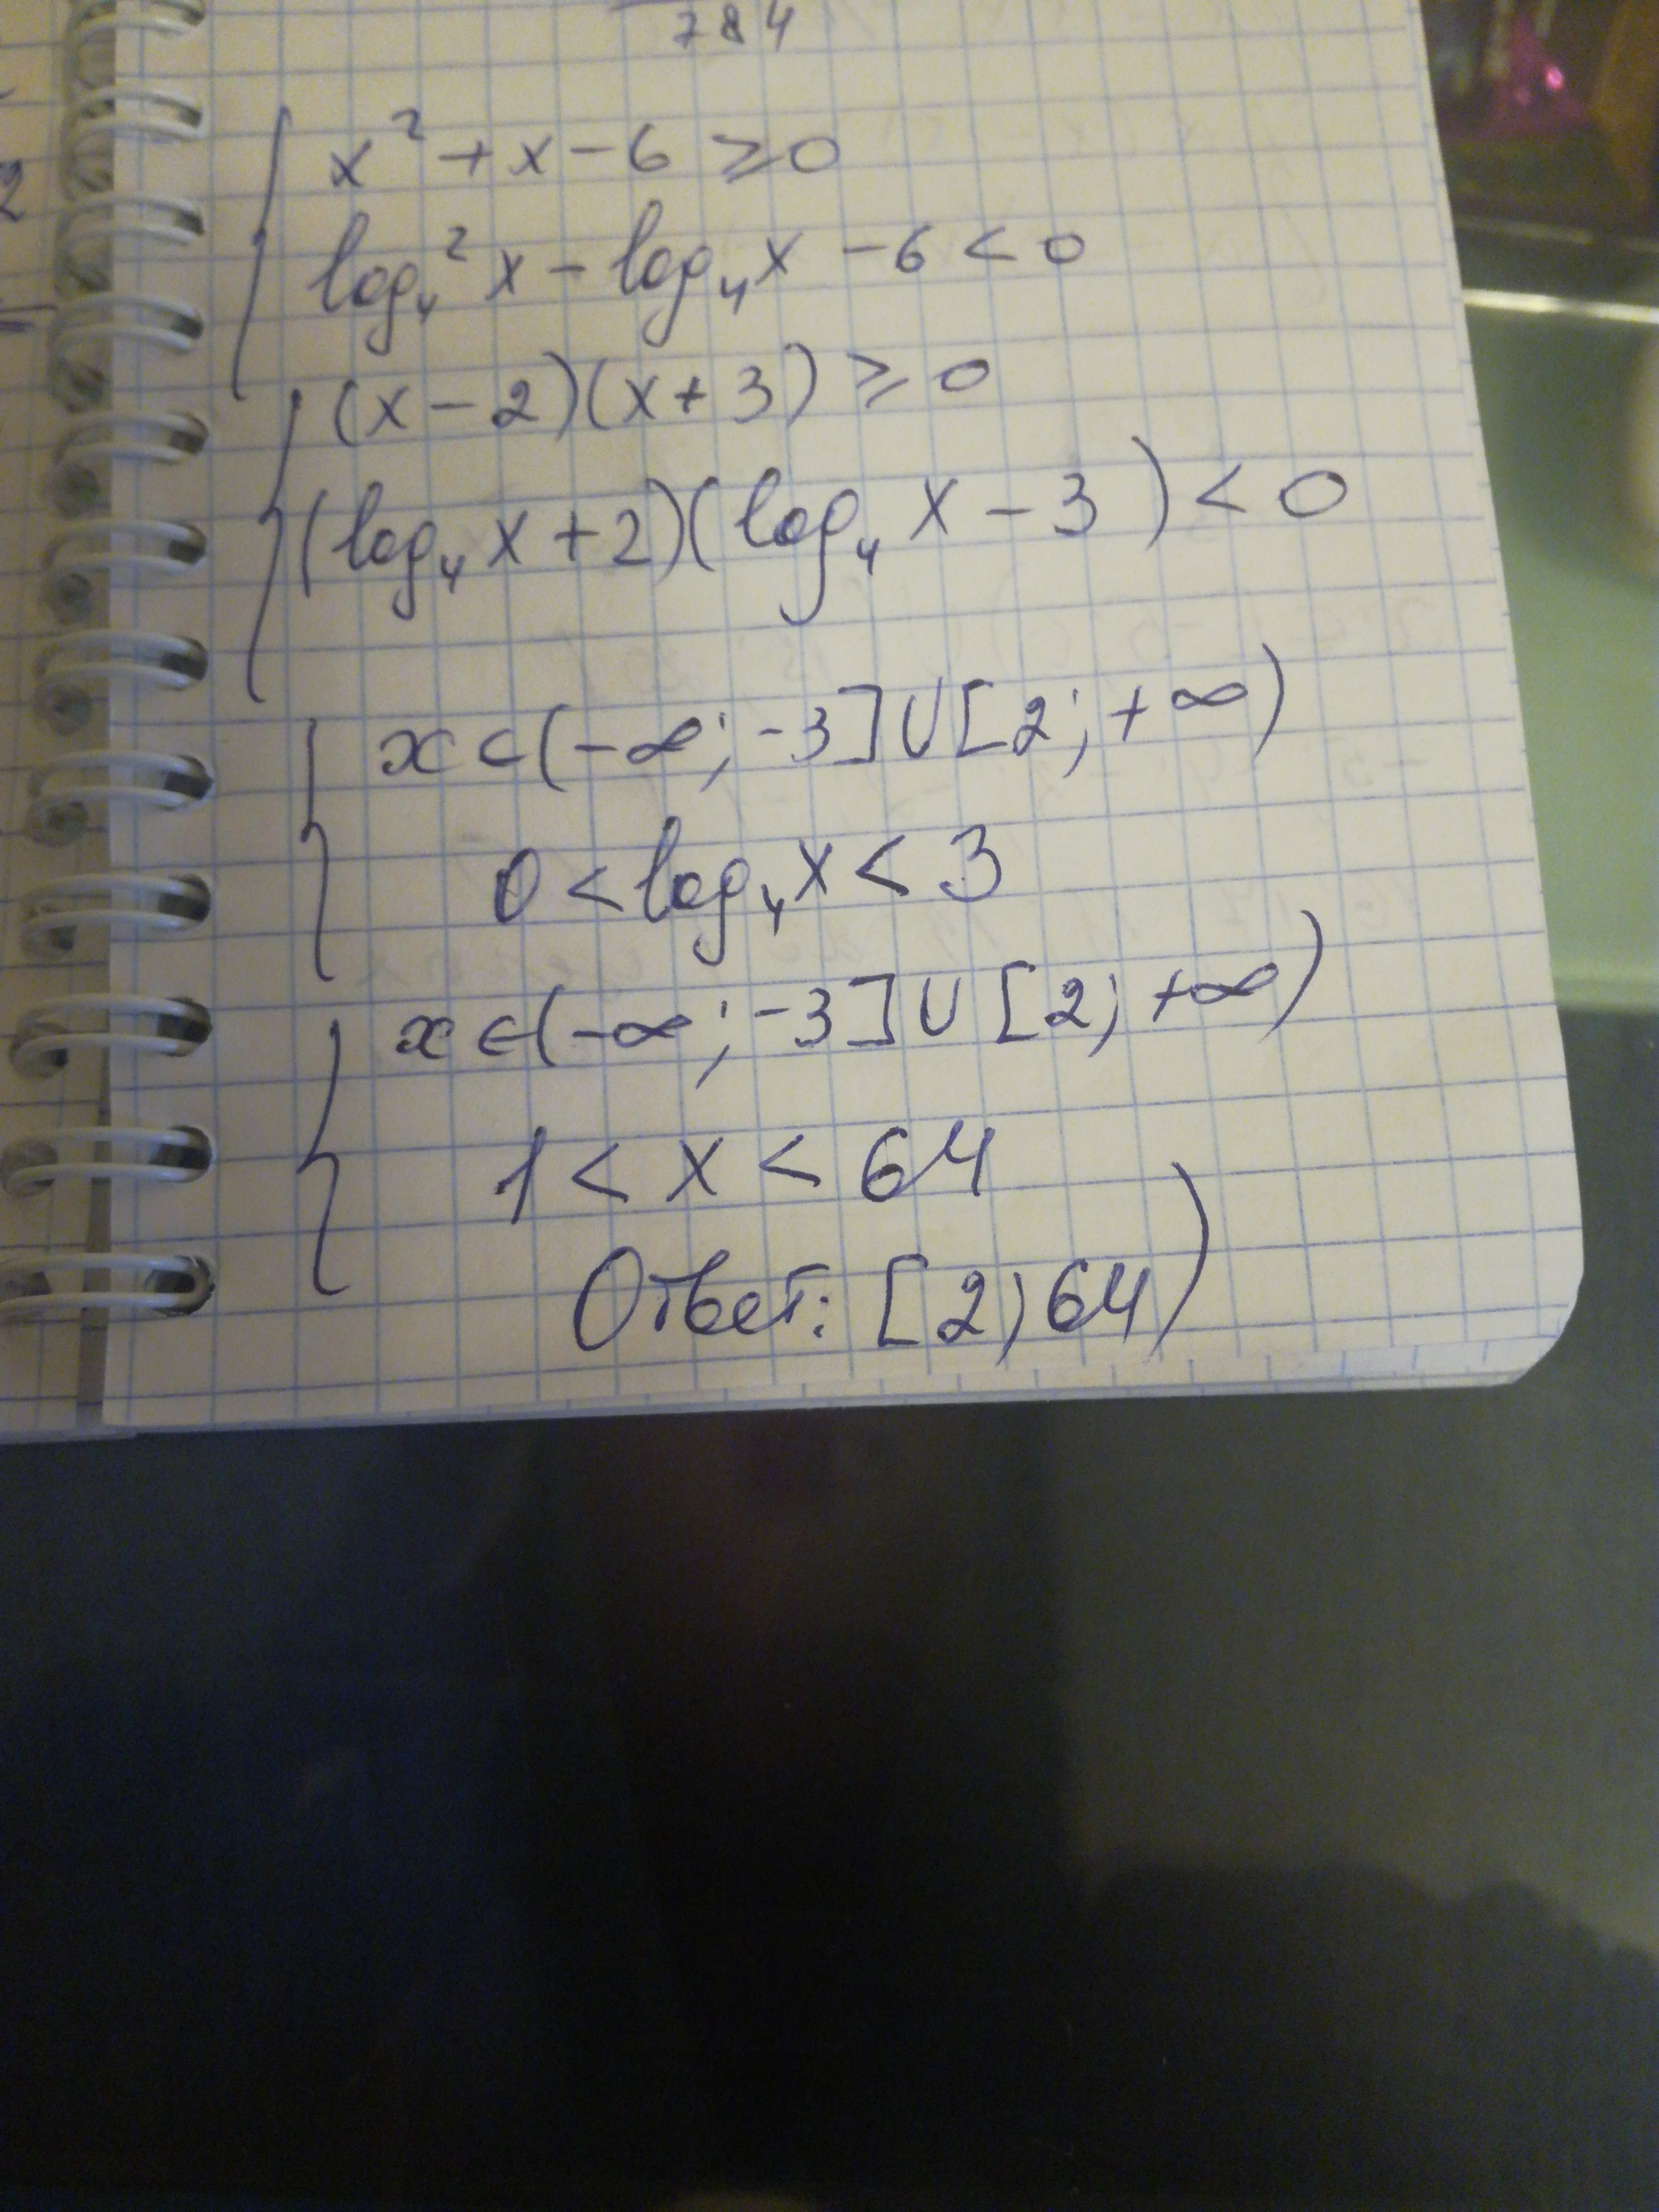 784
x² + x - 6 ⩾ 0
log₄² x - log₄ x - 6 < 0
(x - 2)(x + 3) ⩾ 0
(log₄ x + 2)(log₄ x - 3) < 0
x ∈ (-∞; -3] ∪ [2; +∞)
0 < log₄ x < 3
x ∈ (-∞; -3] ∪ [2; +∞)
1 < x < 64
Ответ: [2; 64)